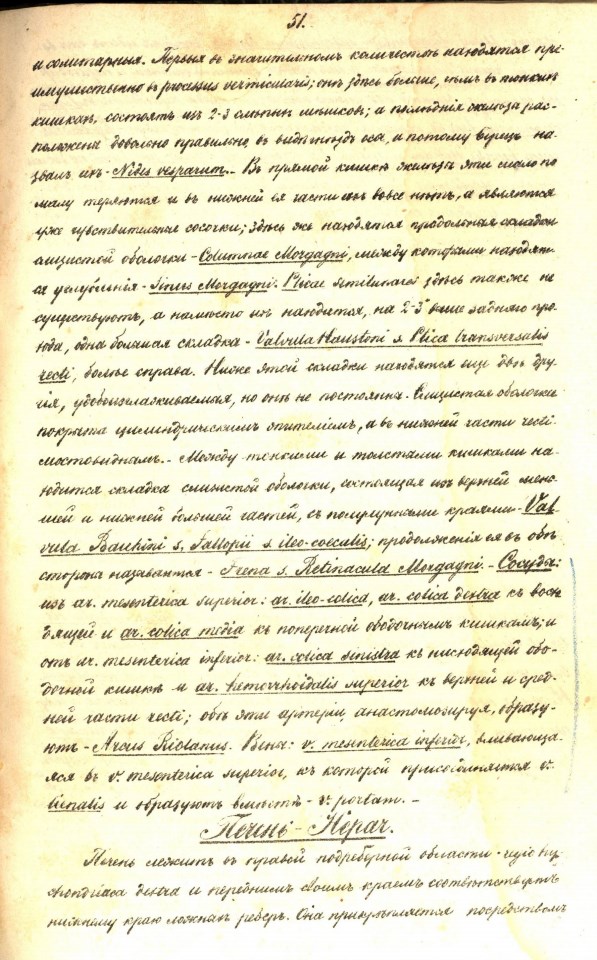 51.
и солитарныя. Первыя въ значительномъ количествѣ находятся пре-
имущественно въ processus vermicularis; онѣ здѣсь больше, чѣмъ въ тонкихъ
кишкахъ, состоятъ изъ 2-3 слѣпыхъ мѣшковъ; а послѣднія железа рас-
положена довольно правильно, въ видѣ гнѣздъ осъ, и потому Бурецъ на-
звалъ ихъ - Nides vesparum. - Въ прямой кишкѣ железы эти мало по
малу теряются и въ нижней ея части ихъ вовсе нѣтъ, а являются
уже чувствительные сосочки; здѣсь же находятся продольныя складки
слизистой оболочки - Columnae Morgagni, между которыми находят-
ся углубленія - Sinus Morgagni. Plicae semilunares здѣсь также не
существуютъ, а намѣсто ихъ находится, на 2-3" выше задняго про-
хода, одна большая складка - Valvula Haustoni s. Plica transversalis
recti, болѣе справа. Ниже этой складки находятся еще двѣ дру-
гія, удобосглаживаемыя, но онѣ не постоянны. Слизистая оболочка
покрыта цилиндрическимъ эпителіемъ, а въ нижней части recti -
мостовиднымъ. - Между тонкими и толстыми кишками на-
ходится складка слизистой оболочки, состоящая изъ верхней мень-
шей и нижней большей частей, съ полулунными краями - Val-
vula Bauhini s. Fallopii s. ileo-coecalis; продолженія ея въ обѣ
стороны называются - Frena s. Retinacula Morgagni. - Сосуды:
изъ ar. mesenterica superior: ar. ileo-colica, ar. colica dextra къ восхо-
дящей и ar. colica media къ поперечной ободочнымъ кишкамъ; и
отъ ar. mesenterica inferior: ar. colica sinistra къ нисходящей обо-
дочной кишкѣ и ar. hemorrhoidalis superior къ верхней и сред-
ней части recti; обѣ эти артеріи, анастомозируя, образу-
ютъ - Arcus Riolanus. Вены: v. mesenterica inferior, вливающа-
яся въ v. mesenterica superior, къ которой присоединяется v.
lienalis и образуютъ вмѣстѣ - v. portam. -
Печень - Hepar.
Печень лежитъ въ правой подреберной области - regio hypo-
chondriaca dextra и переднимъ своимъ краемъ соотвѣтствуетъ
нижнему краю ложныхъ реберъ. Она прикрѣпляется посредствомъ